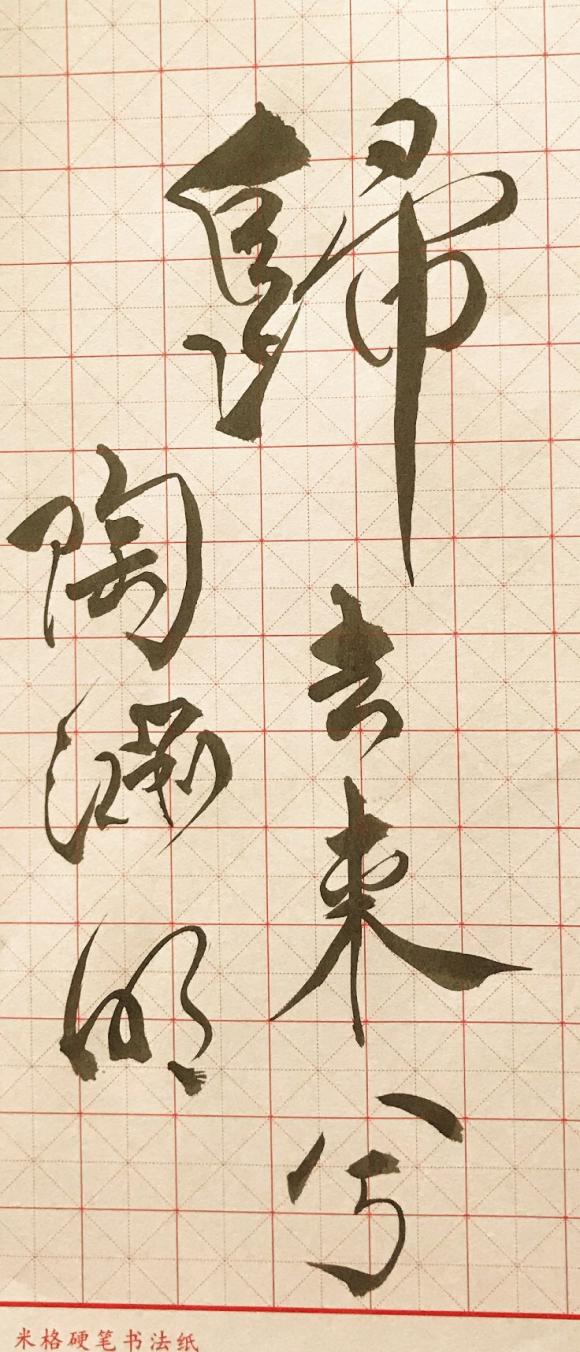 歸去来兮
陶渊明
米格硬笔书法纸